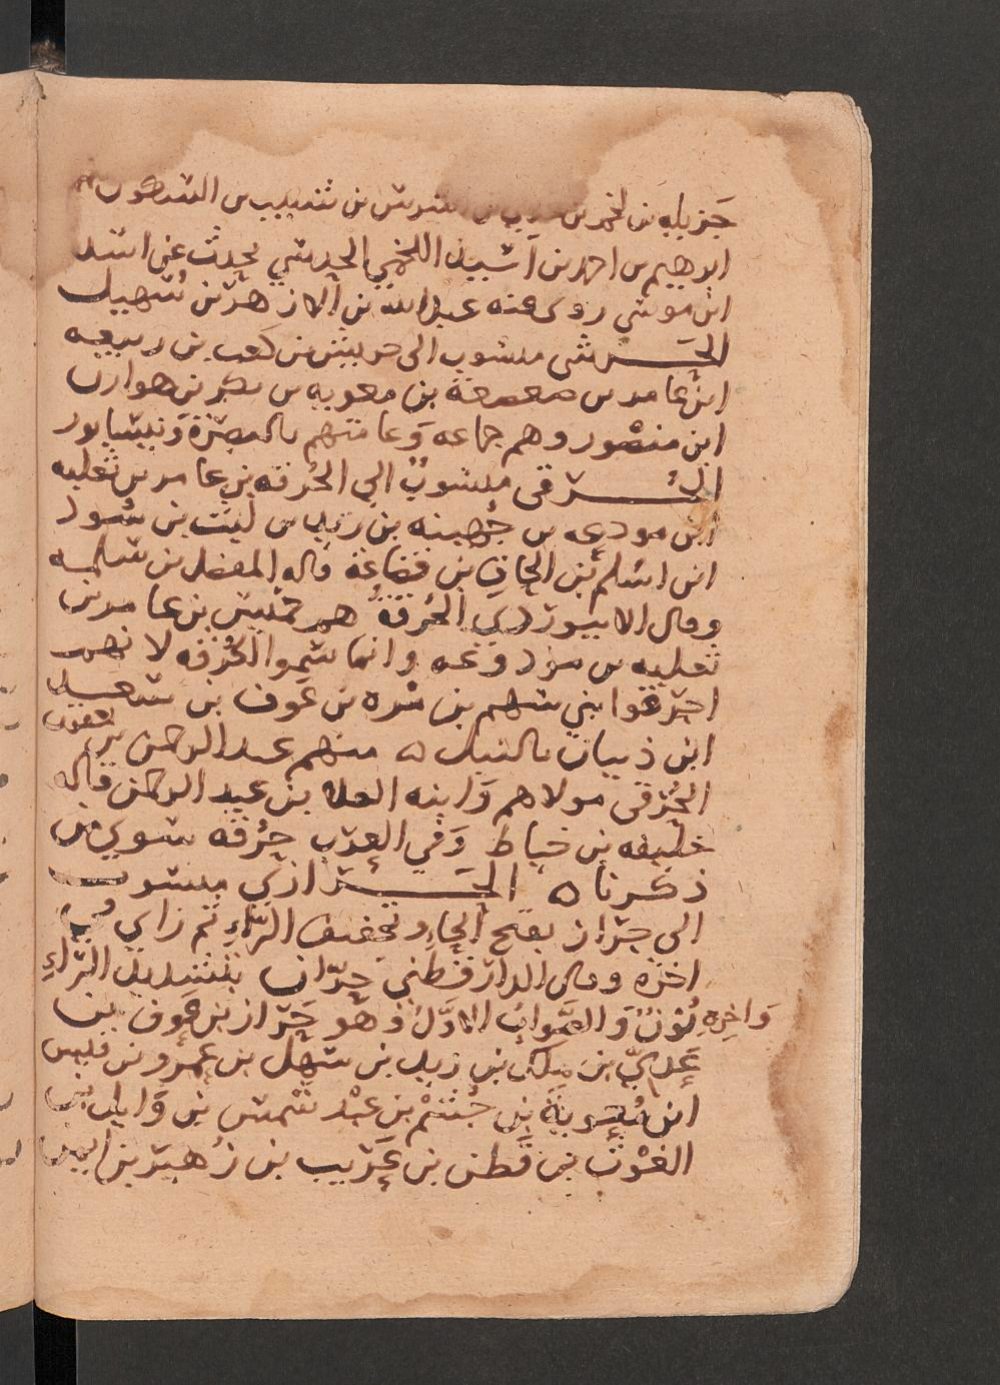 جزيله بن لخم بن بن شبيب بن السكون
ابرهيم بن احمد بن اشيد اللخمي الحدسي يحدث عن اسد
ابن موسى روى عنه عبد الله بن الازهر بن سهيل
الحرشي منسوب الى حريش بن كعب بن ربيعه
ابن عامر بن صعصعة بن معويه بن بكر بن هوازن
ابن منصور وهم جماعه وعامتهم بالبصرة ونيسابور
الحرقي منسوب الى الحرقه بن عامر بن ثعلبه
ابن مودعه بن جهينه بن زيد بن ليث بن سود
ابن اسلم بن الحاف بن قضاعة قاله المفضل بن سلمه
وقال الابيوردي الحرقة هم حميس بن عامر بن
ثعلبه بن مودوعه وانما سموا الحرقه لانهم
احرقوا بني سهم بن مره بن عوف بن سعد
ابن ذبيان بالنبل ه منهم عبد الرحمن بن يعقوب
الحرقى مولاهم وابنه العلا بن عبد الرحمن قاله
خليفه بن خياط وفي العرب حرقه سوى من
ذكرنا ه الحرازي منسوب
الى حراز بفتح الحاء وتخفيف الراء ثم زاي في
اخره وقال الدارقطني حران بتشديد الراء
واخره نون والصواب الاول وهو حراز بن عوف بن
عدي بن ملك بن زيد بن سهل بن عمرو بن قيس
ابن معوية بن جشم بن عبد شمس بن وايل بن
الغوث بن قطن بن عريب بن زهير بن ايمن